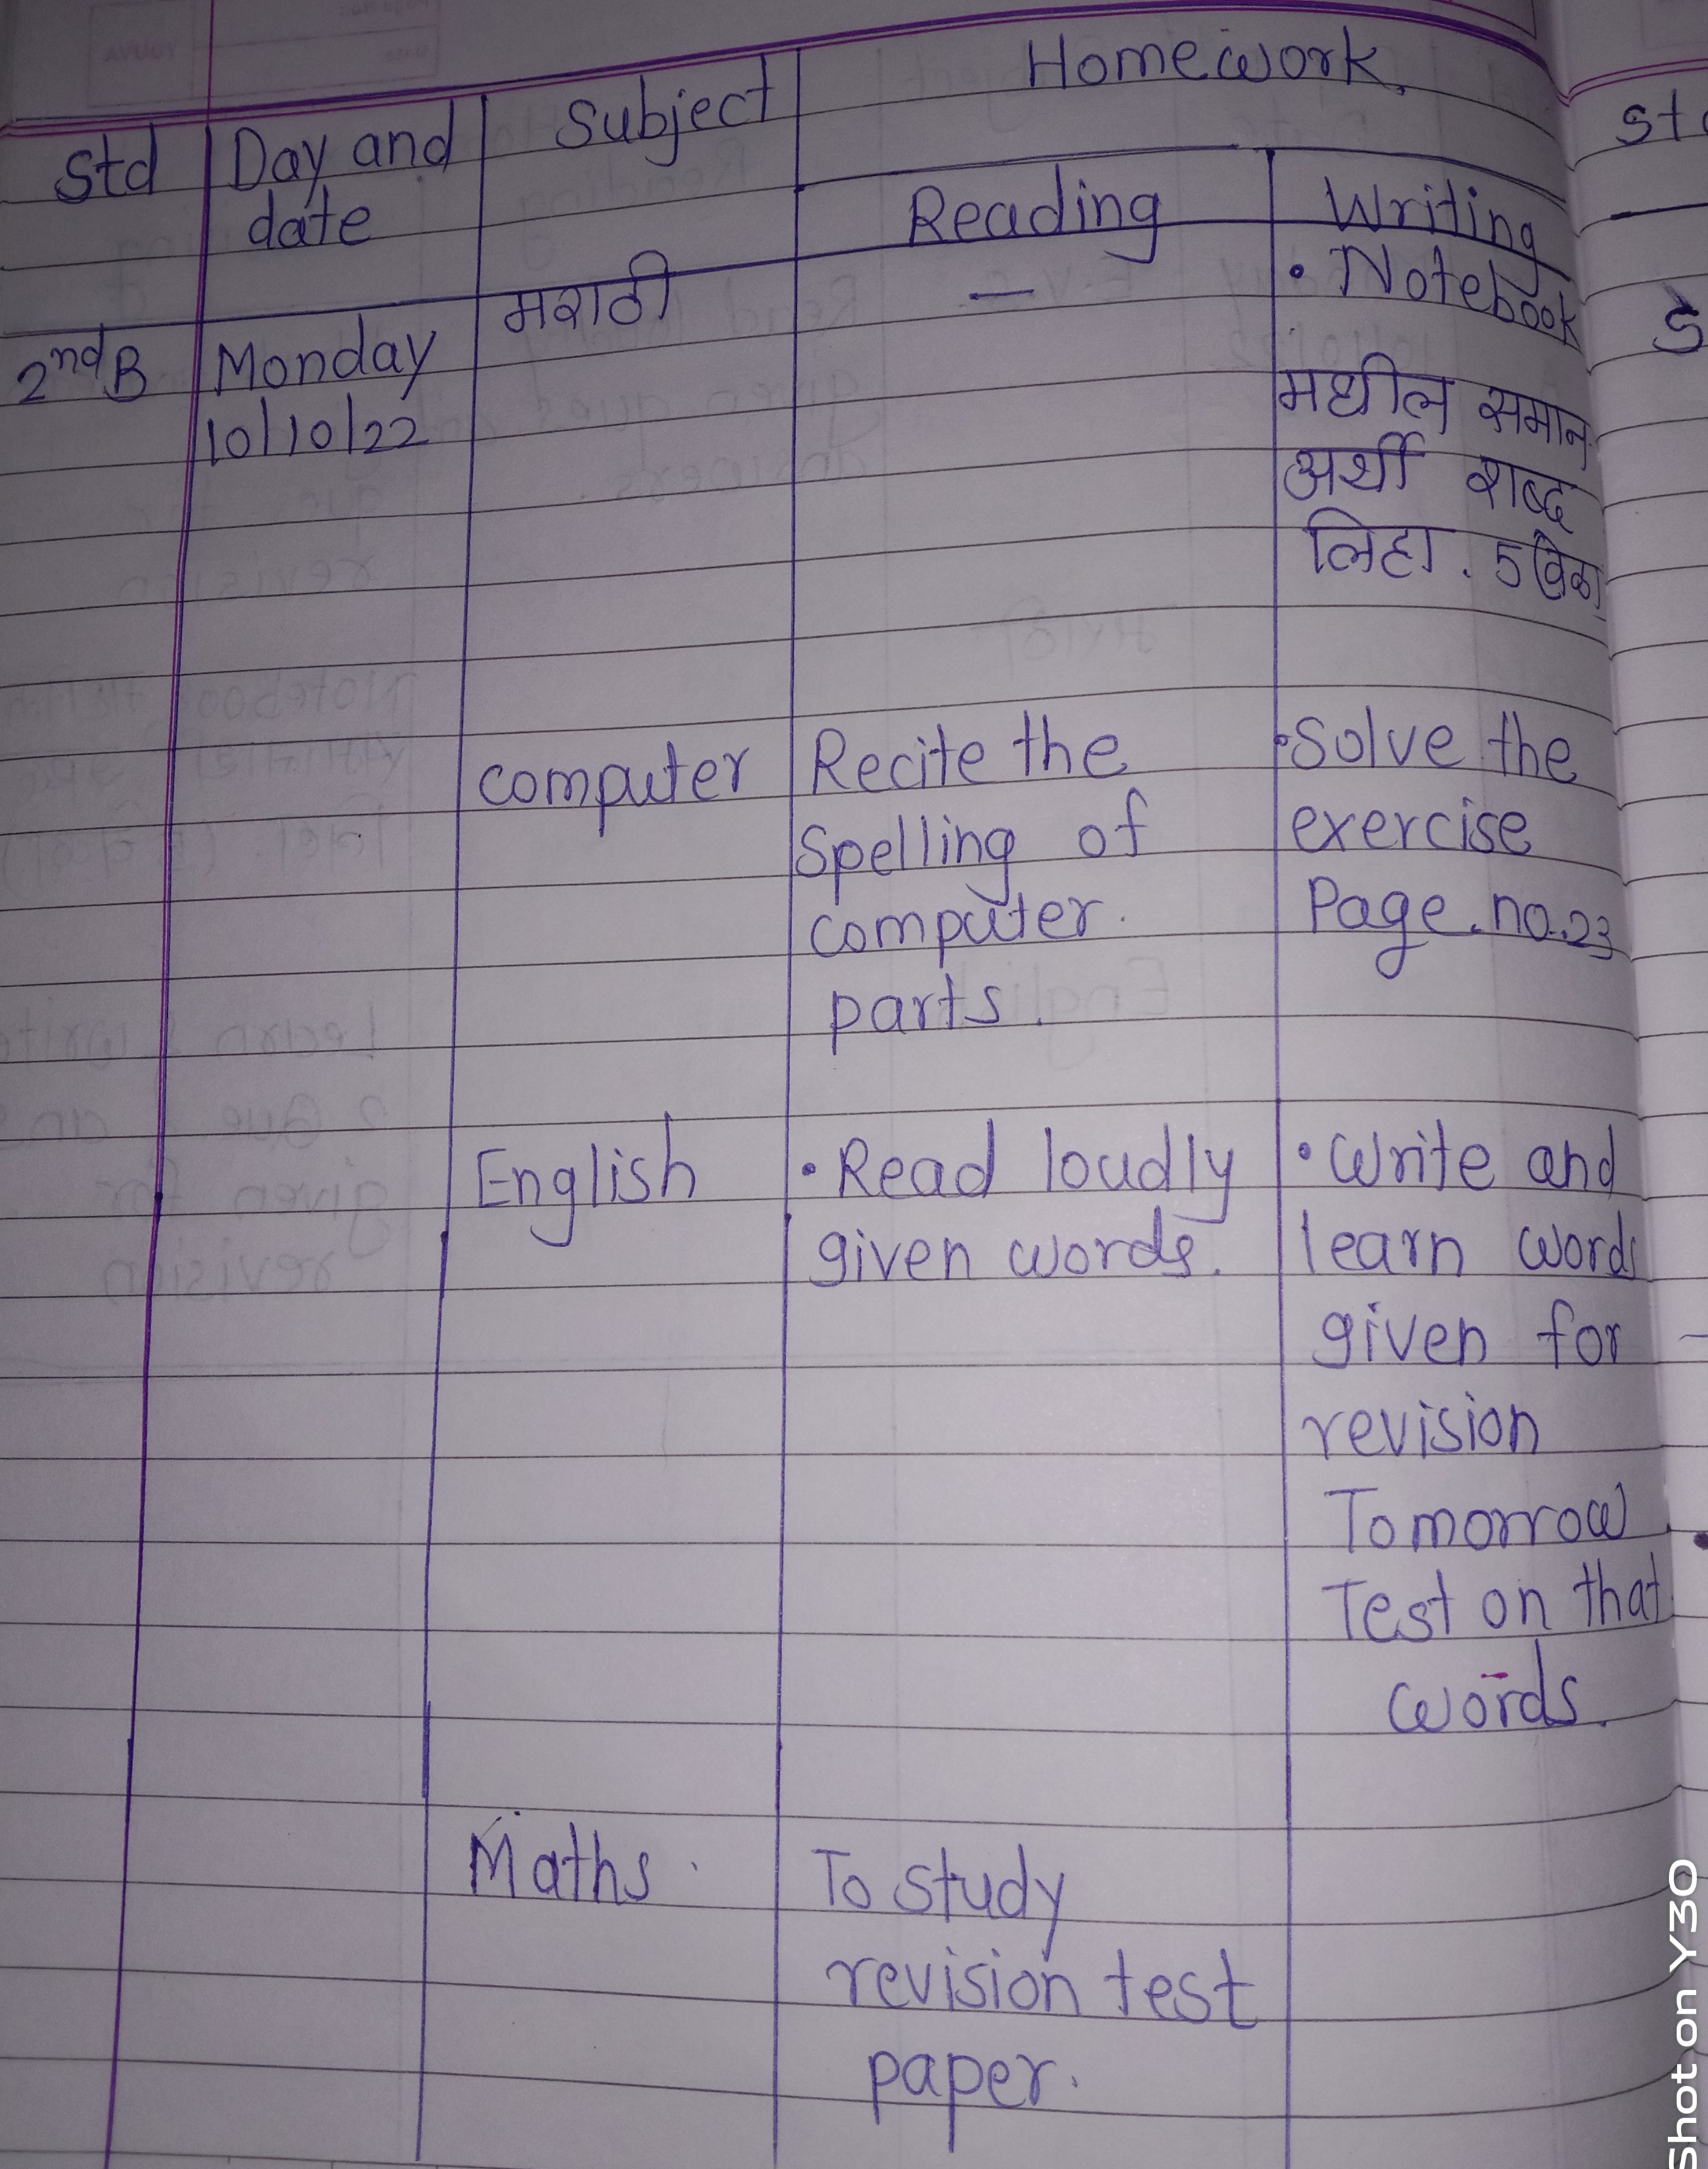 Homework.
Std
Day and
date
Subject
Reading
Writing
2nd B
Monday
10/10/22
मराठी
—
• Notebook
मधील समान
अर्थी शब्द
लिहा. 5 वेळा
computer
Recite the
Spelling of
computer.
parts.
• Solve the
exercise
Page. no. 23
English
• Read loudly
given words.
• Write and
learn words
given for
revision
Tomorrow
Test on that
words.
Maths.
To study
revision test
paper.
Shot on Y30